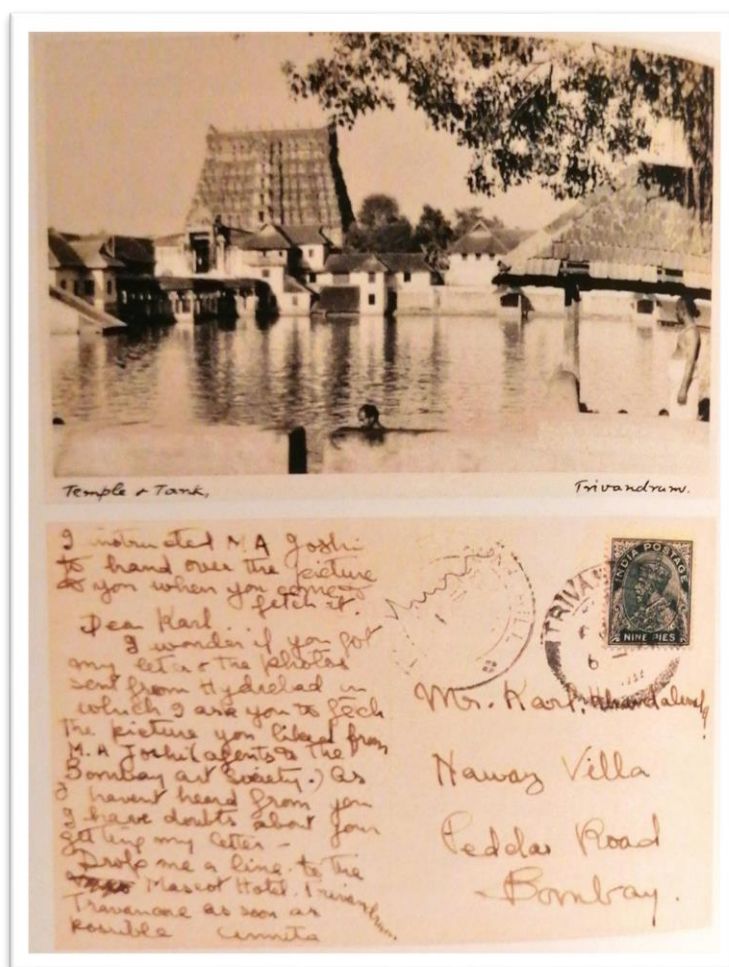 Temple & Tank,
Trivandrum.
I instructed M A Joshi
to hand over the picture
to you when you come
fetch it.
Dear Karl.
I wonder if you got
my letter & the photos
sent from Hydrebad in
which I ask you to fech
the picture you liked from
M.A Joshi (agents to the
Bombay art Society.) As
I havent heard from you
I have doubts about your
getting my letter -
Drop me a line to the
Mascot Hotel. Trivandrum
Travancore as soon as
possible Amrita
INDIA POSTAGE
NINE PIES
TRIVAN
6
Mr. Karl. Khandalavala
Nawaz Villa
Peddar Road
Bombay.